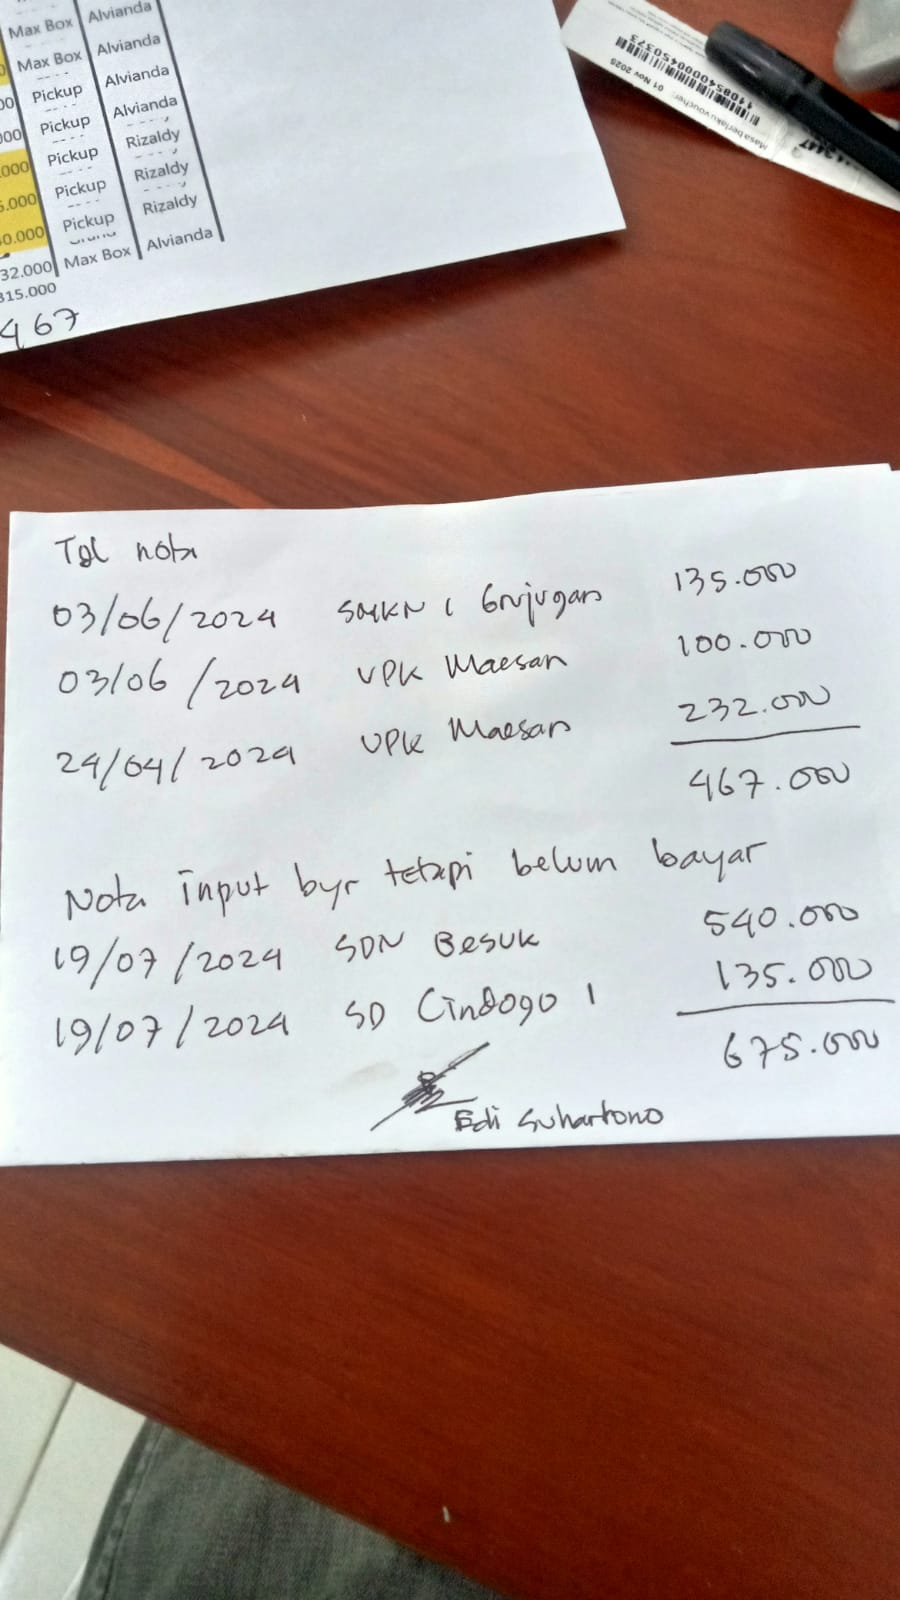 Max Box Alvianda
Max Box Alvianda
00 Pickup Alvianda
000 Pickup Alvianda
.000 Pickup Rizaldy
5.000 Pickup Rizaldy
0.000 Pickup Rizaldy
32.000 Max Box Alvianda
315.000
467
Masa berlaku voucher: 01 Nov 2025
Tgl nota
03/06/2024 SMKN 1 Grujugan 135.000
03/06/2024 UPK Maesan 100.000
24/04/2024 UPK Maesan 232.000
467.000
Nota input byr tetapi belum bayar
19/07/2024 SDN Besuk 540.000
19/07/2024 SD Cindogo 1 135.000
675.000
Edi Suhartono